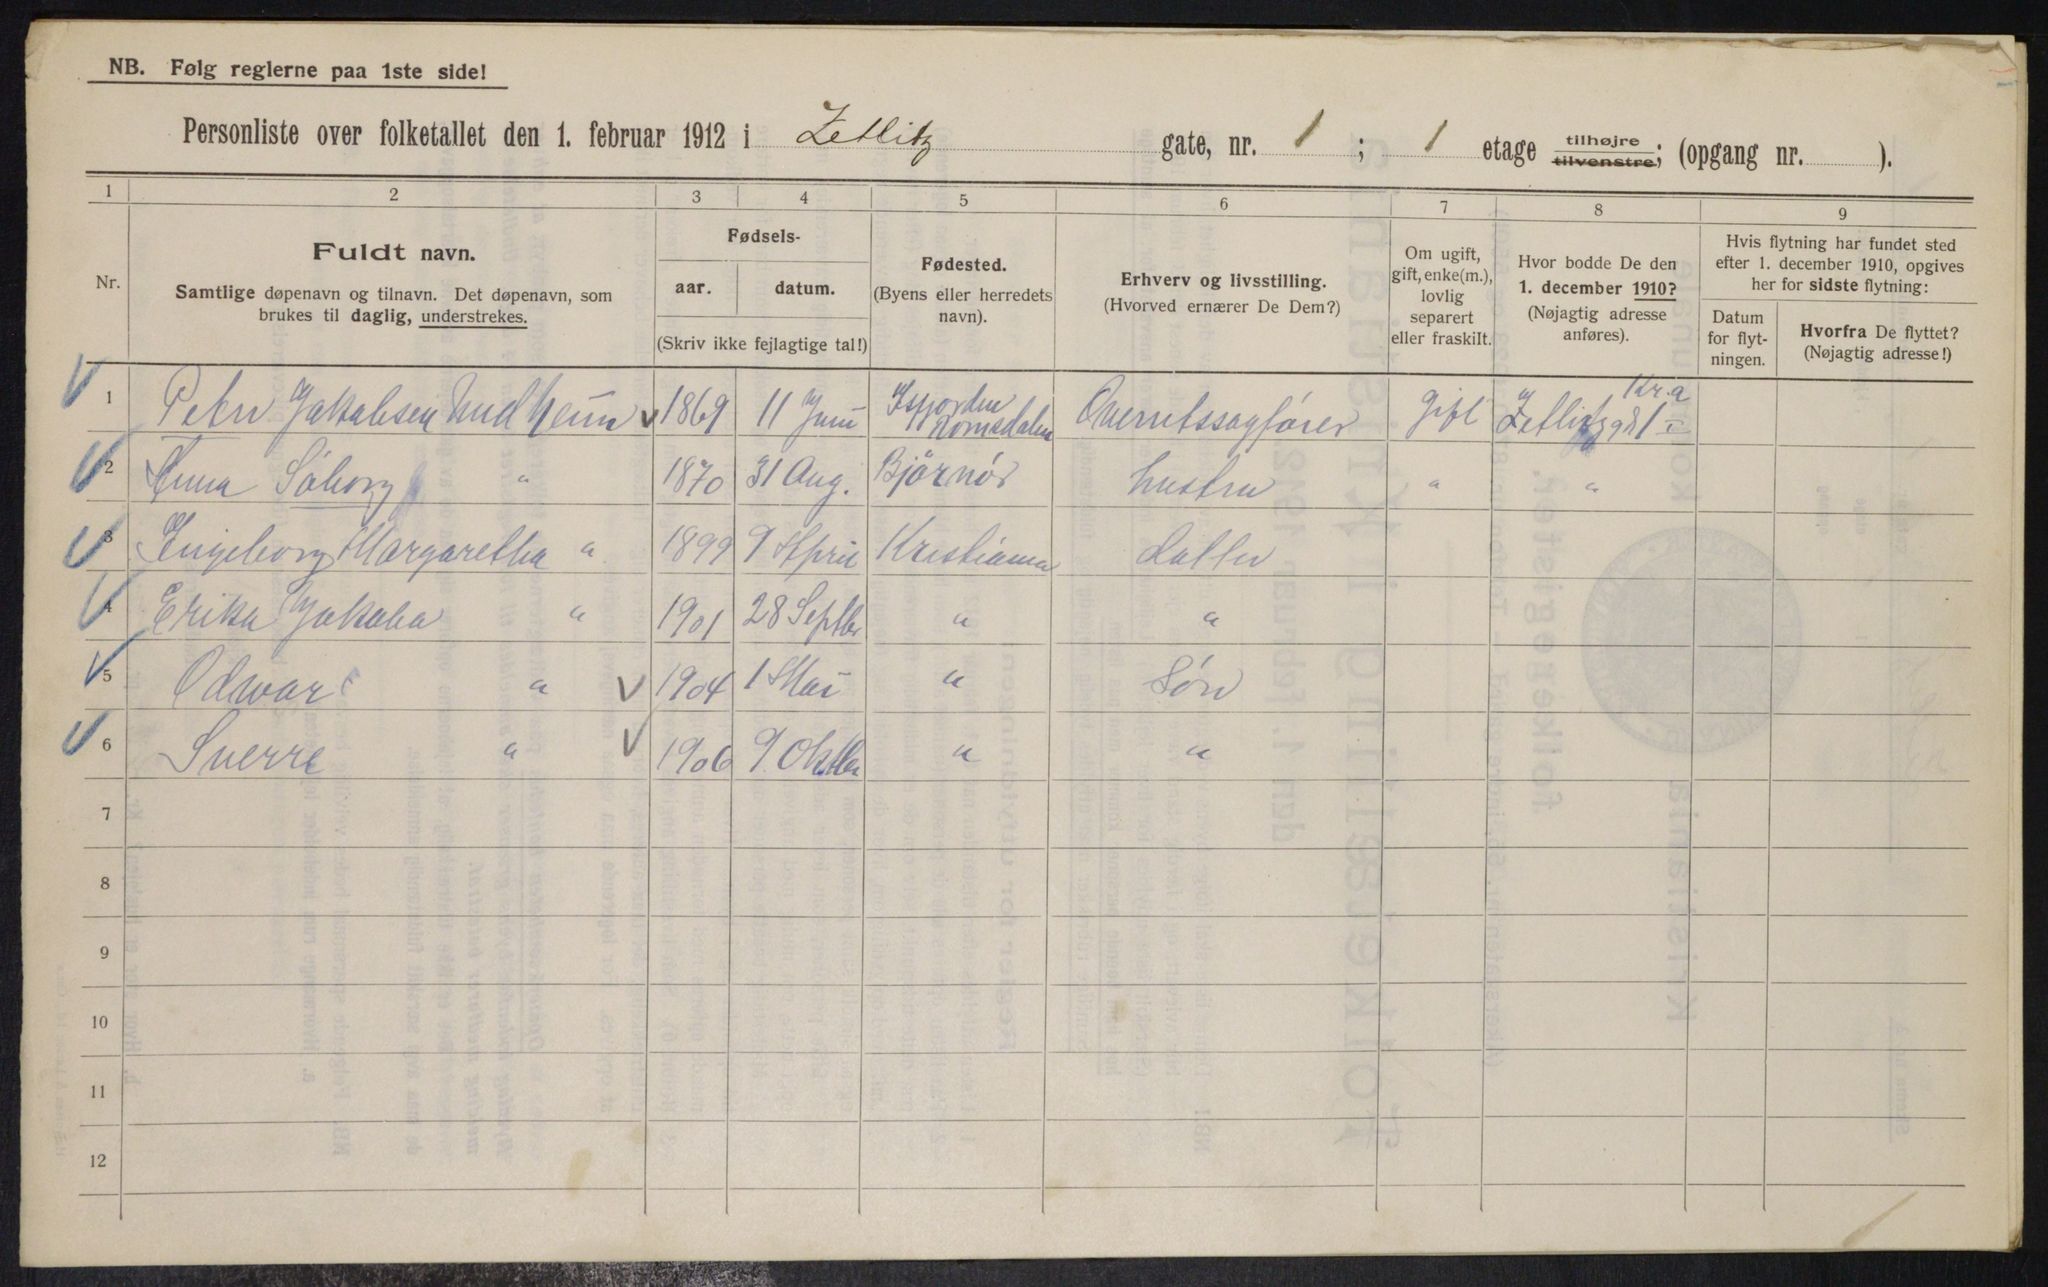 NB. Følg reglerne paa 1ste side!
Personliste over folketallet den 1. februar 1912 i Zetlitz gate, nr. 1 ; 1 etage tilhøjre tilvenstre; (opgang nr. ).
1 2 3 4 5 6 7 8 9
Nr.
Fuldt navn.
Samtlige døpenavn og tilnavn. Det døpenavn, som
brukes til daglig, understrekes.
Fødsels-
aar. datum.
(Skriv ikke fejlagtige tal!)
Fødested.
(Byens eller herredets
navn).
Erhverv og livsstilling.
(Hvorved ernærer De Dem?)
Om ugift,
gift, enke(m.),
lovlig
separert
eller fraskilt.
Hvor bodde De den
1. december 1910?
(Nøjagtig adresse
anføres).
Hvis flytning har fundet sted
efter 1. december 1910, opgives
her for sidste flytning:
Datum
for flyt-
ningen.
Hvorfra De flyttet?
(Nøjagtig adresse!)
1 Peter Jakobsen 1869 11 Juni Isfjorden Romsdalen Overretssagfører gift Zetlitzgd 1 Kr.a
2 Anna Söborg " 1870 31 Aug. Bjørnør hustru " "
3 Ingeborg Margaretha " 1899 9 April Kristiania Datter
4 Erika Jakoba " 1901 28 Septbr " "
5 Odvar " 1904 1 Mai " Søn
6 Sverre " 1906 9 Oktbr " "
7
8
9
10
11
12